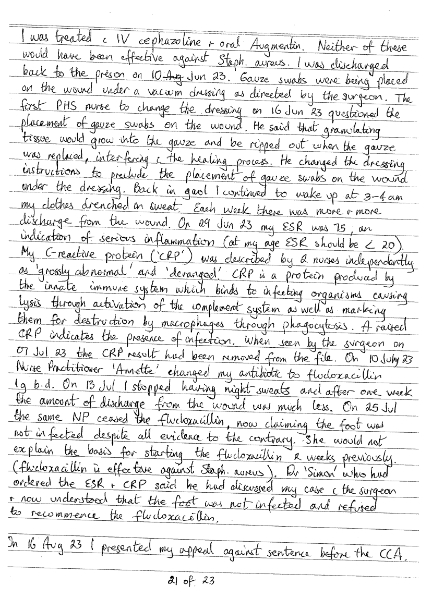 I was treated c IV cephazoline + oral Augmentin. Neither of these
would have been effective against Staph. aureus. I was discharged
back to the prison on 10 Jun 23. Gauze swabs were being placed
on the wound under a vacuum dressing as directed by the surgeon. The
first PHS nurse to change the dressing on 16 Jun 23 questioned the
placement of gauze swabs on the wound. He said that granulating
tissue would grow into the gauze and be ripped out when the gauze
was replaced, interfering c the healing process. He changed the dressing
instructions to preclude the placement of gauze swabs on the wound
under the dressing. Back in gaol I continued to wake up at 3-4am
my clothes drenched in sweat. Each week there was more & more
discharge from the wound. On 29 Jun 23 my ESR was 75, an
indication of serious inflammation (at my age ESR should be < 20).
My C-reactive protein ('CRP') was described by 2 nurses independently
as 'grossly abnormal' and 'deranged'. CRP is a protein produced by
the innate immune system which binds to infecting organisms causing
lysis through activation of the complement system as well as marking
them for destruction by macrophages through phagocytosis. A raised
CRP indicates the presence of infection. When seen by the surgeon on
07 Jul 23 the CRP result had been removed from the file. On 10 July 23
Nurse Practitioner 'Annette' changed my antibiotic to flucloxacillin
1g b.d. On 13 Jul I stopped having night sweats and after one week
the amount of discharge from the wound was much less. On 25 Jul
the same NP ceased the flucloxacillin, now claiming the foot was
not infected despite all evidence to the contrary. She would not
explain the basis for starting the flucloxacillin 2 weeks previously.
(flucloxacillin is effective against Staph. aureus). Dr 'Simon' who had
ordered the ESR + CRP said he had discussed my case c the surgeon
+ now understood that the foot was not infected and refused
to recommence the flucloxacillin.
On 16 Aug 23 I presented my appeal against sentence before the CCA.
21 of 23